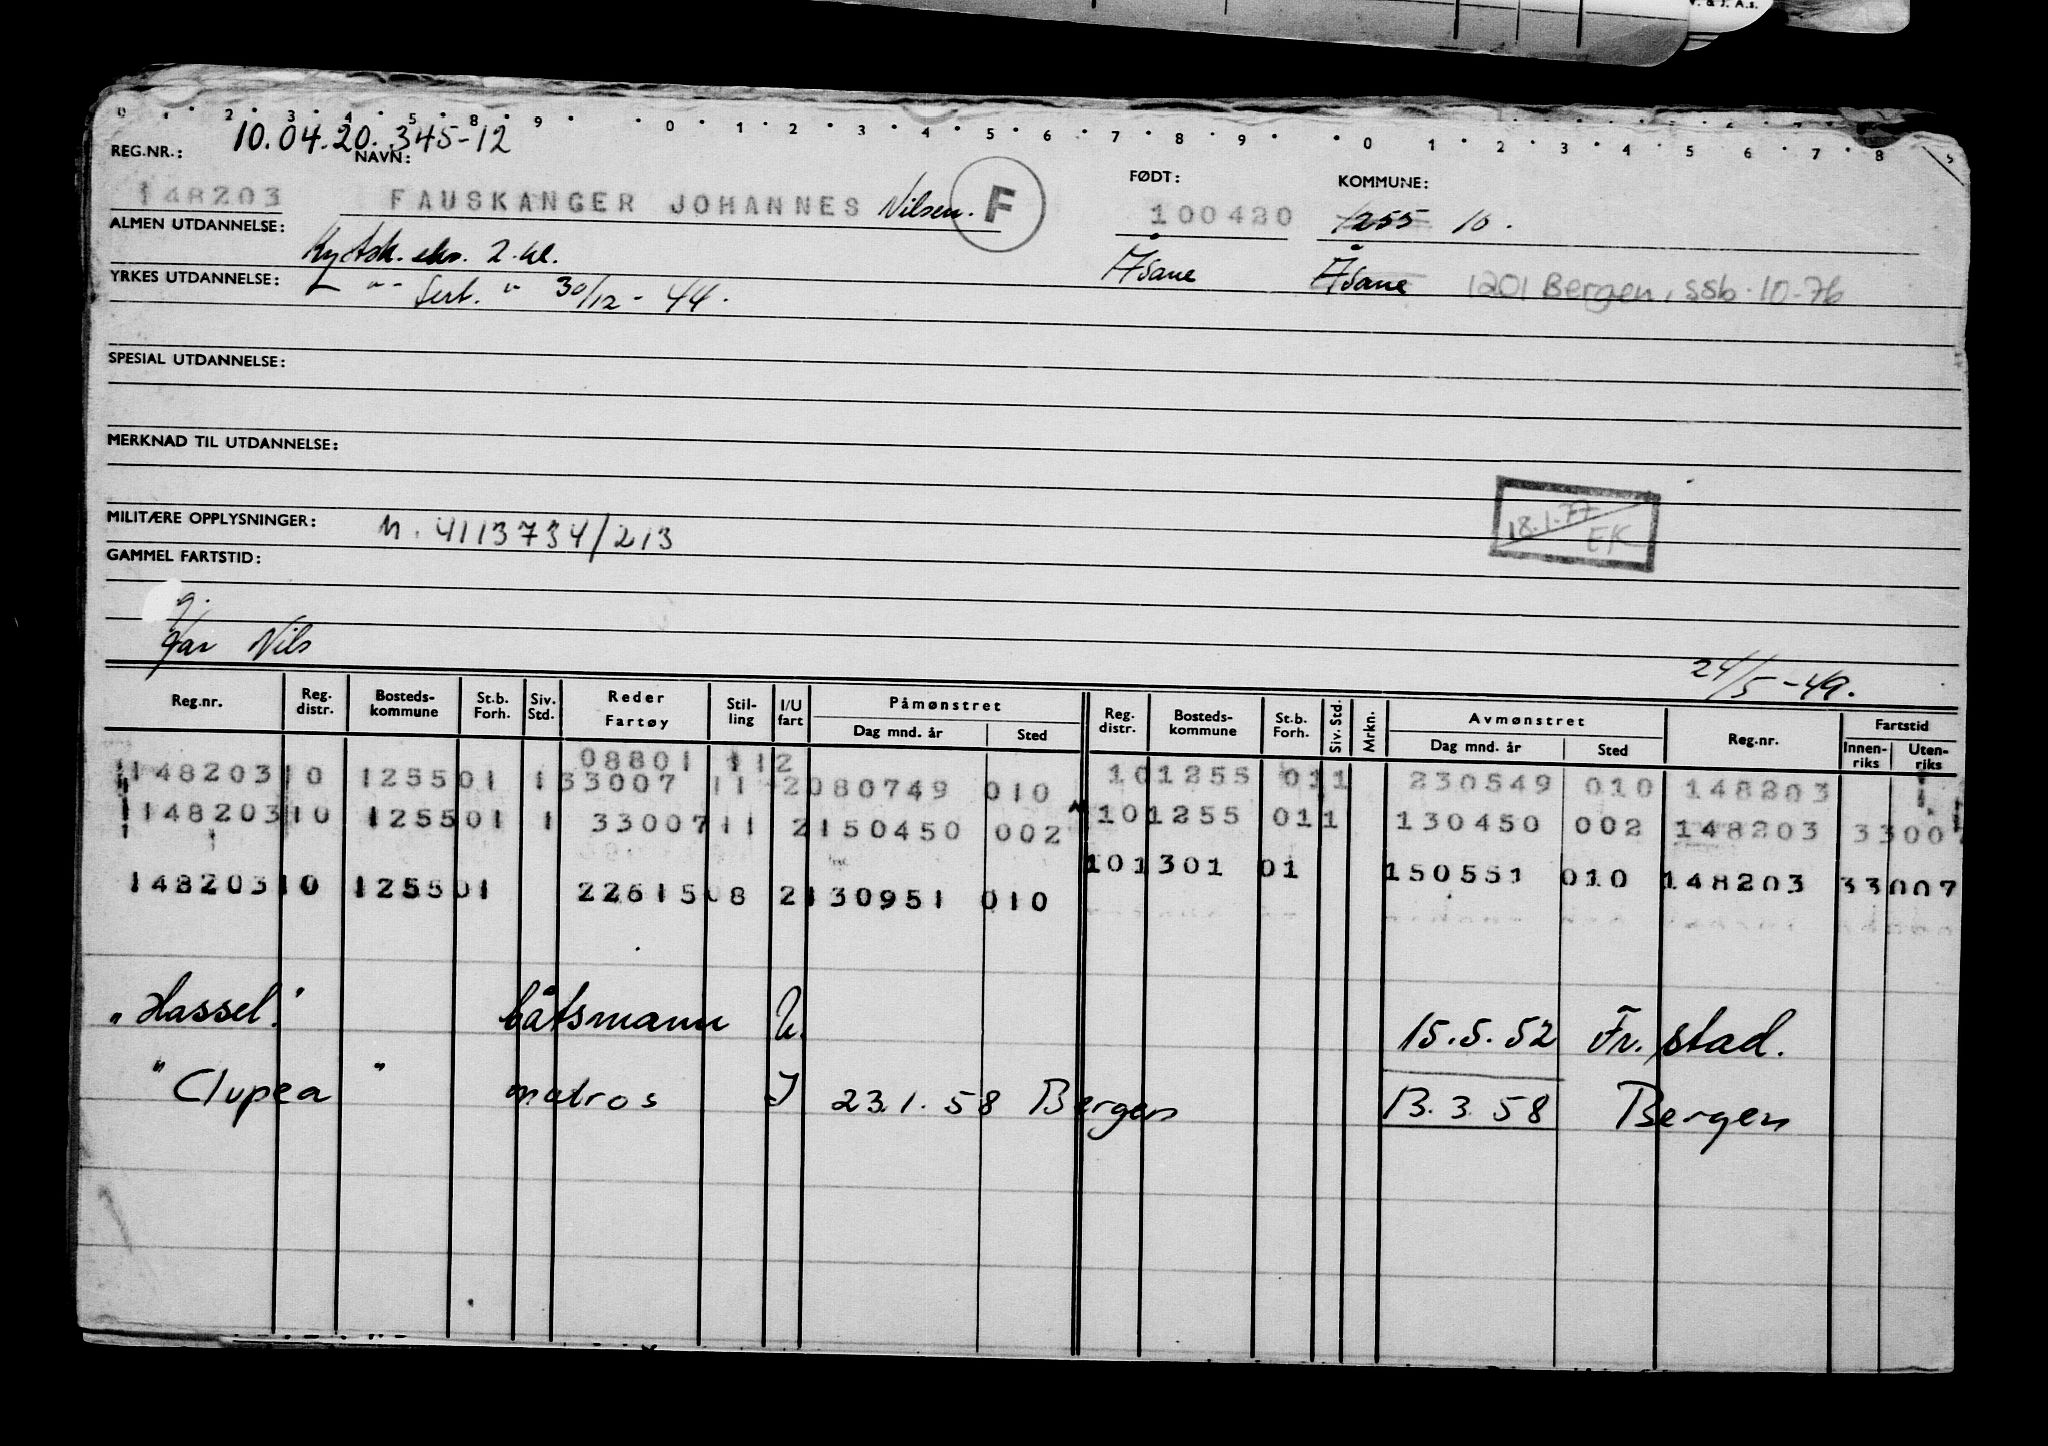 V. & J. A.s.
0 1 2 3 4 5 8 9 0 1 2 3 4 5 6 7 8 9 0 1 2 3 4 5 6 7 8 9
10.04.20. 345-12
REG.NR.: NAVN: FØDT: KOMMUNE:
148203 FAUSKANGER JOHANNES Nilsen. F 100420 1255 10.
ALMEN UTDANNELSE: Kystsk. eks. 2. kl. Åsane Åsane 1201 Bergen, ssb. 10-76
YRKES UTDANNELSE: -"- Sert. " 30/12 - 44.
SPESIAL UTDANNELSE:
MERKNAD TIL UTDANNELSE:
18.1.77 EK
MILITÆRE OPPLYSNINGER: M. 4113734/213
GAMMEL FARTSTID:
g.
Far Nils 24/5-49.
Reg.nr. Reg. distr. Bosteds-kommune St.b. Forh. Siv. Std. Reder Fartøy Stil-ling I/U fart Påmønstret Dag mnd. år Sted Reg. distr. Bosteds-kommune St.b. Forh. Siv. Std. Mrkn. Avmønstret Dag mnd. år Sted Reg.nr. Fartstid Innen-riks Uten-riks
08801 112
148203 10 1255 01 1 33007 11 2 080749 010 10 1255 01 1 230549 010 148203
148203 10 1255 01 1 33007 11 2 150450 002 10 1255 01 1 130450 002 148203 33007
148203 10 1255 01 22615 08 2 130951 010 10 1301 01 150551 010 148203 33007
"Hassel." båtsmann U. 15.5.52 Fr.stad.
"Clupea" matros I 23.1.58 Bergen 13.3.58 Bergen